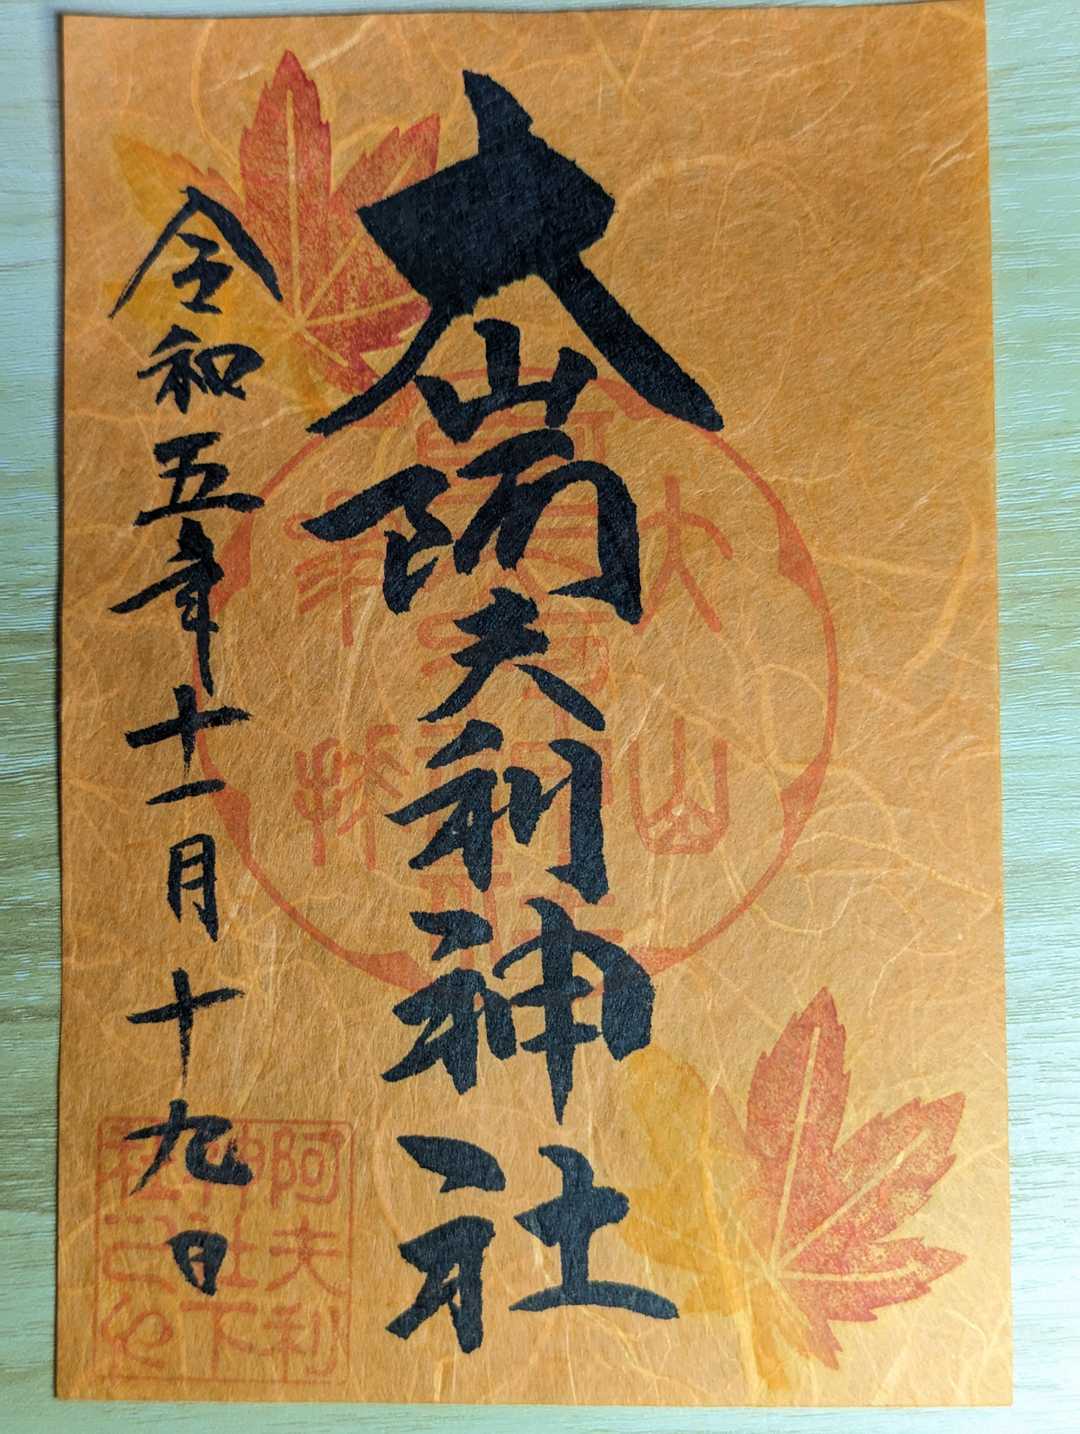 大山
大山阿夫利神社
令和五年十一月十九日
阿夫利
神社下
社之印